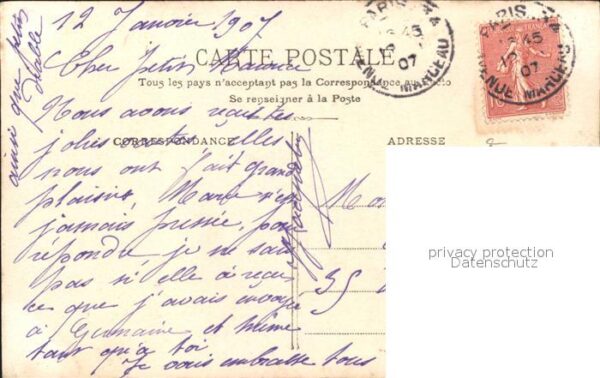 12 Janvier 1907
Cher petit
CARTE POSTALE
Tous les pays n'acceptent pas la Correspondance au
Se renseigner à la Poste
CORRESPONDANCE
ADRESSE
Nous avons reçu tes
jolies cartes, elles
nous ont fait grand
plaisir, Marie n'est
jamais pressée, pour
répondre, je ne sais
pas si elle a reçu
ce que j'avais envoyé
à Germaine et même
tant qu'à toi
Je vais embrasse tous
ainsi que
35
PARIS
AVENUE MARCEAU
07
PARIS
AVENUE MARCEAU
45
07
10
privacy protection
Datenschutz